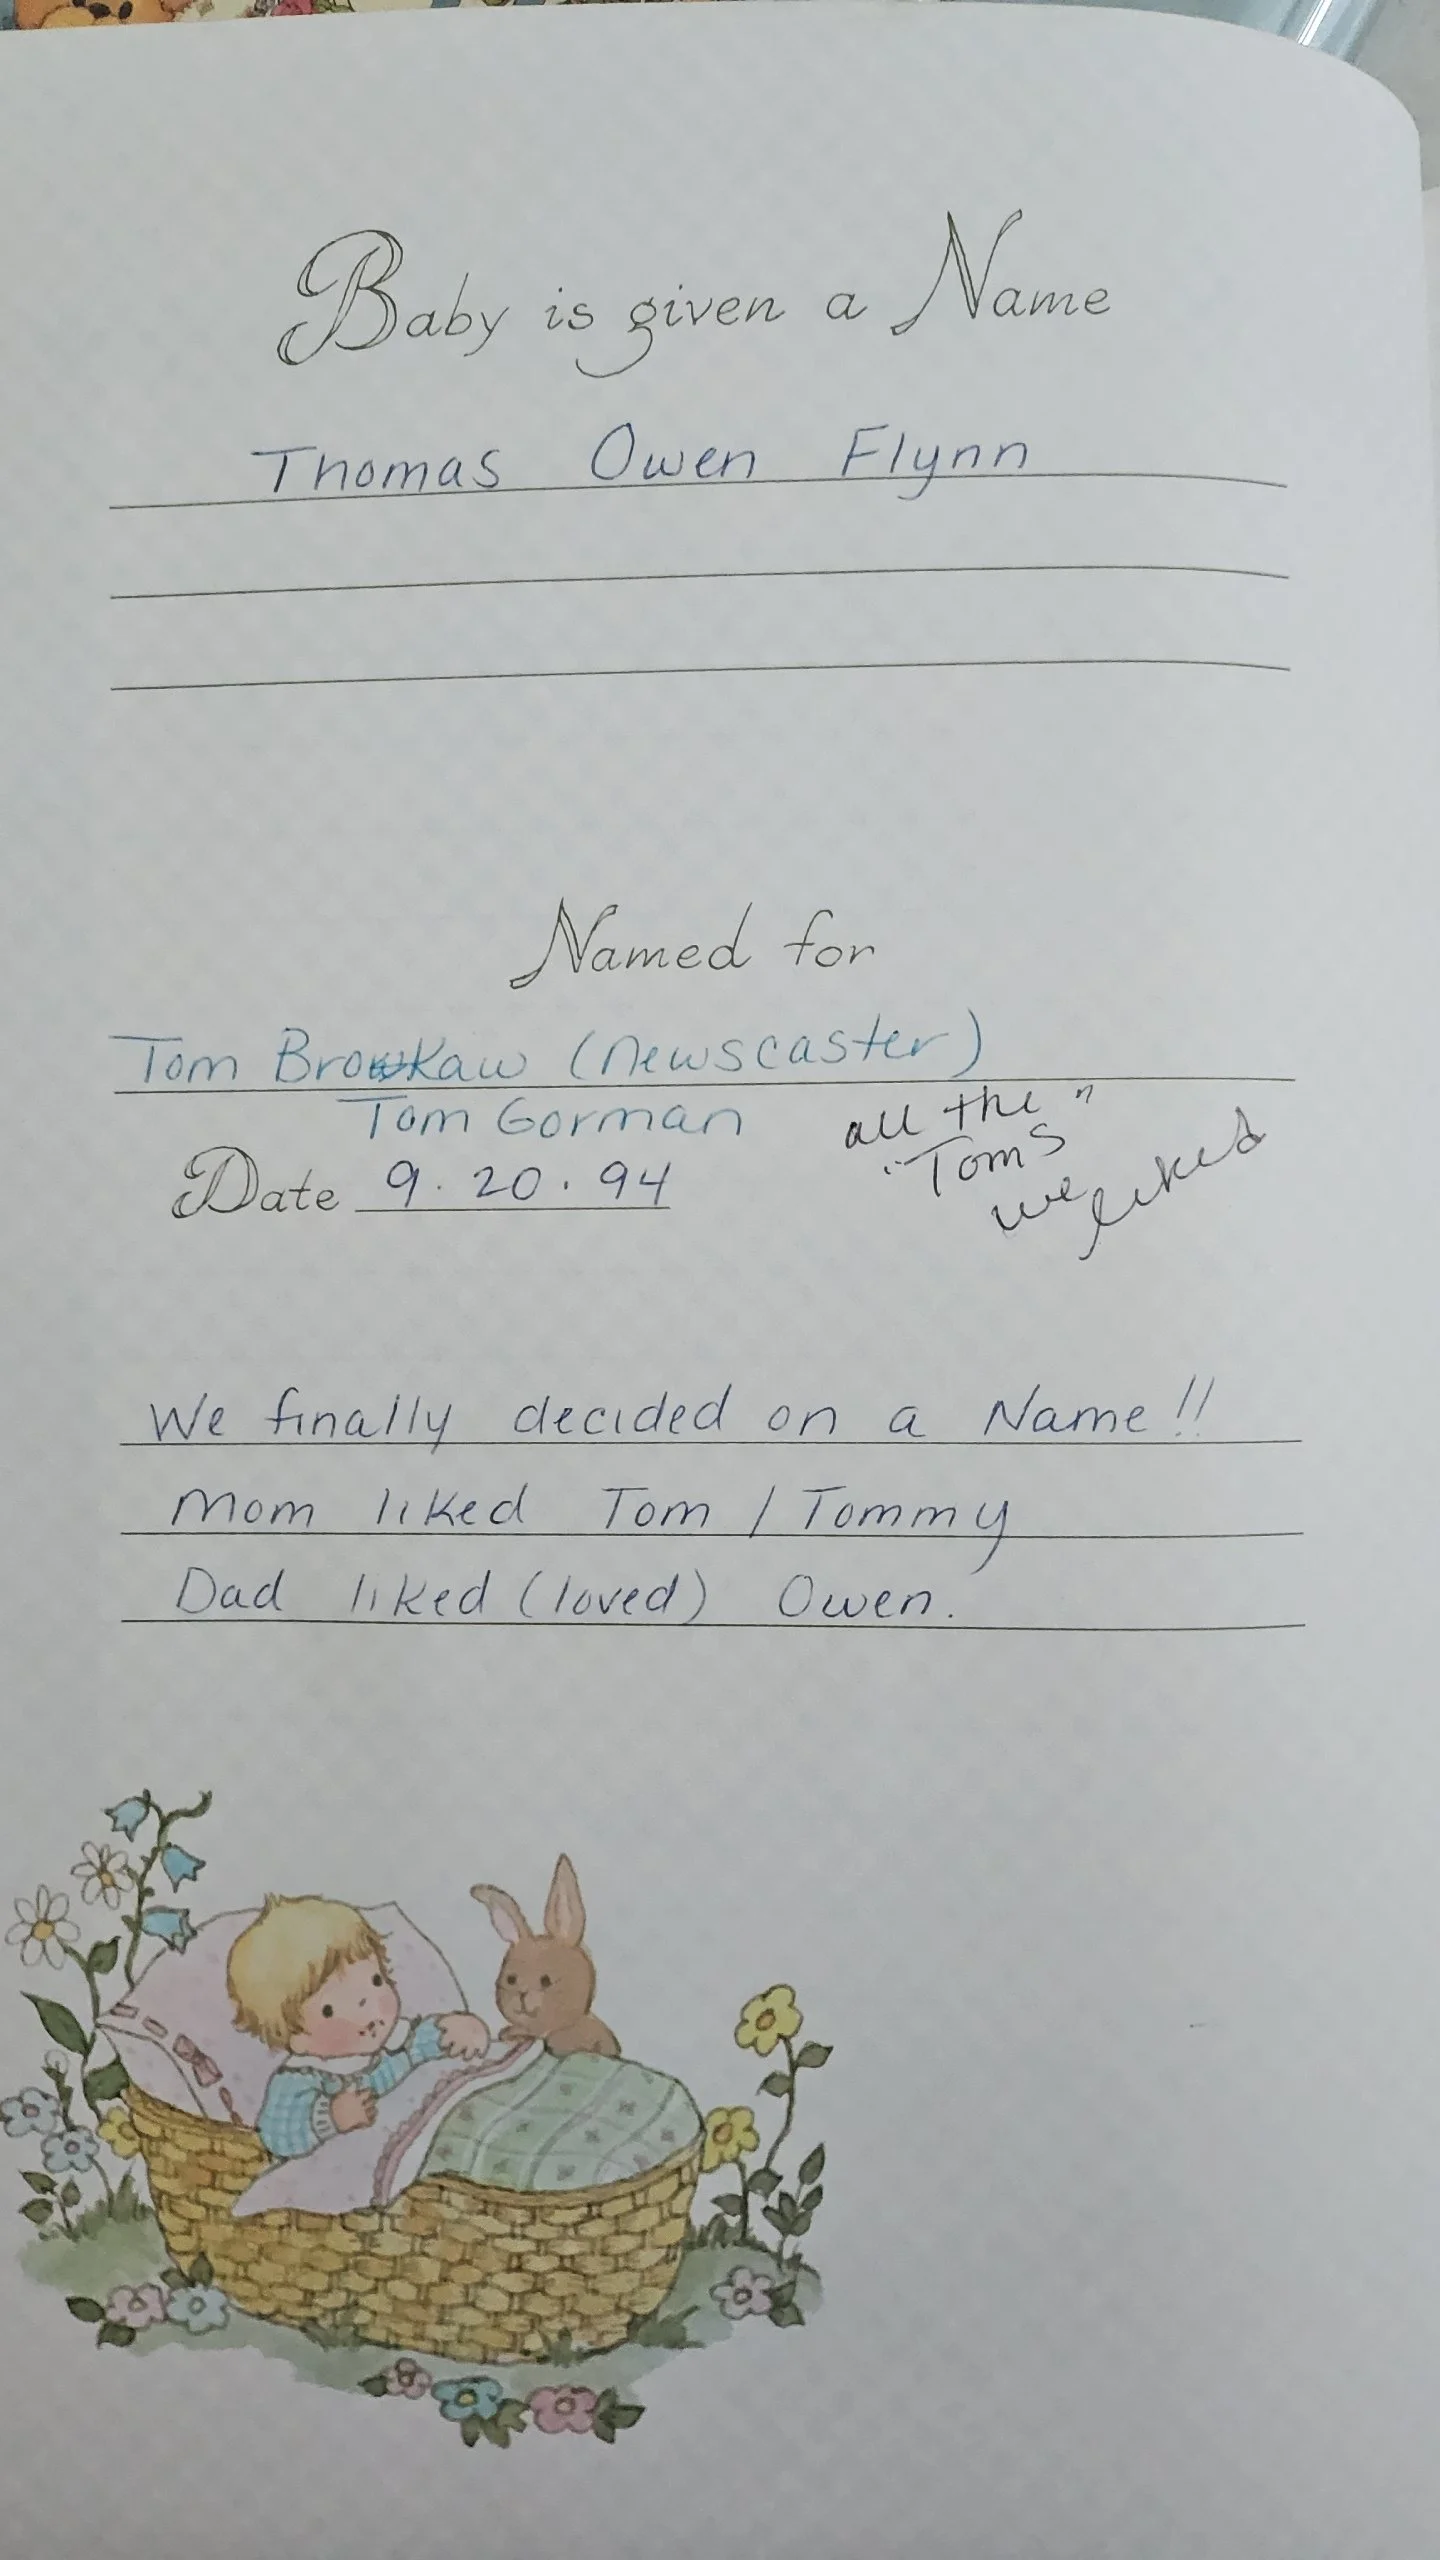 Baby is given a Name
Thomas Owen Flynn
Named for
Tom Brokaw (newscaster)
Tom Gorman
all the
"Toms"
we liked
Date 9.20.94
We finally decided on a Name!!
Mom liked Tom / Tommy
Dad liked (loved) Owen.